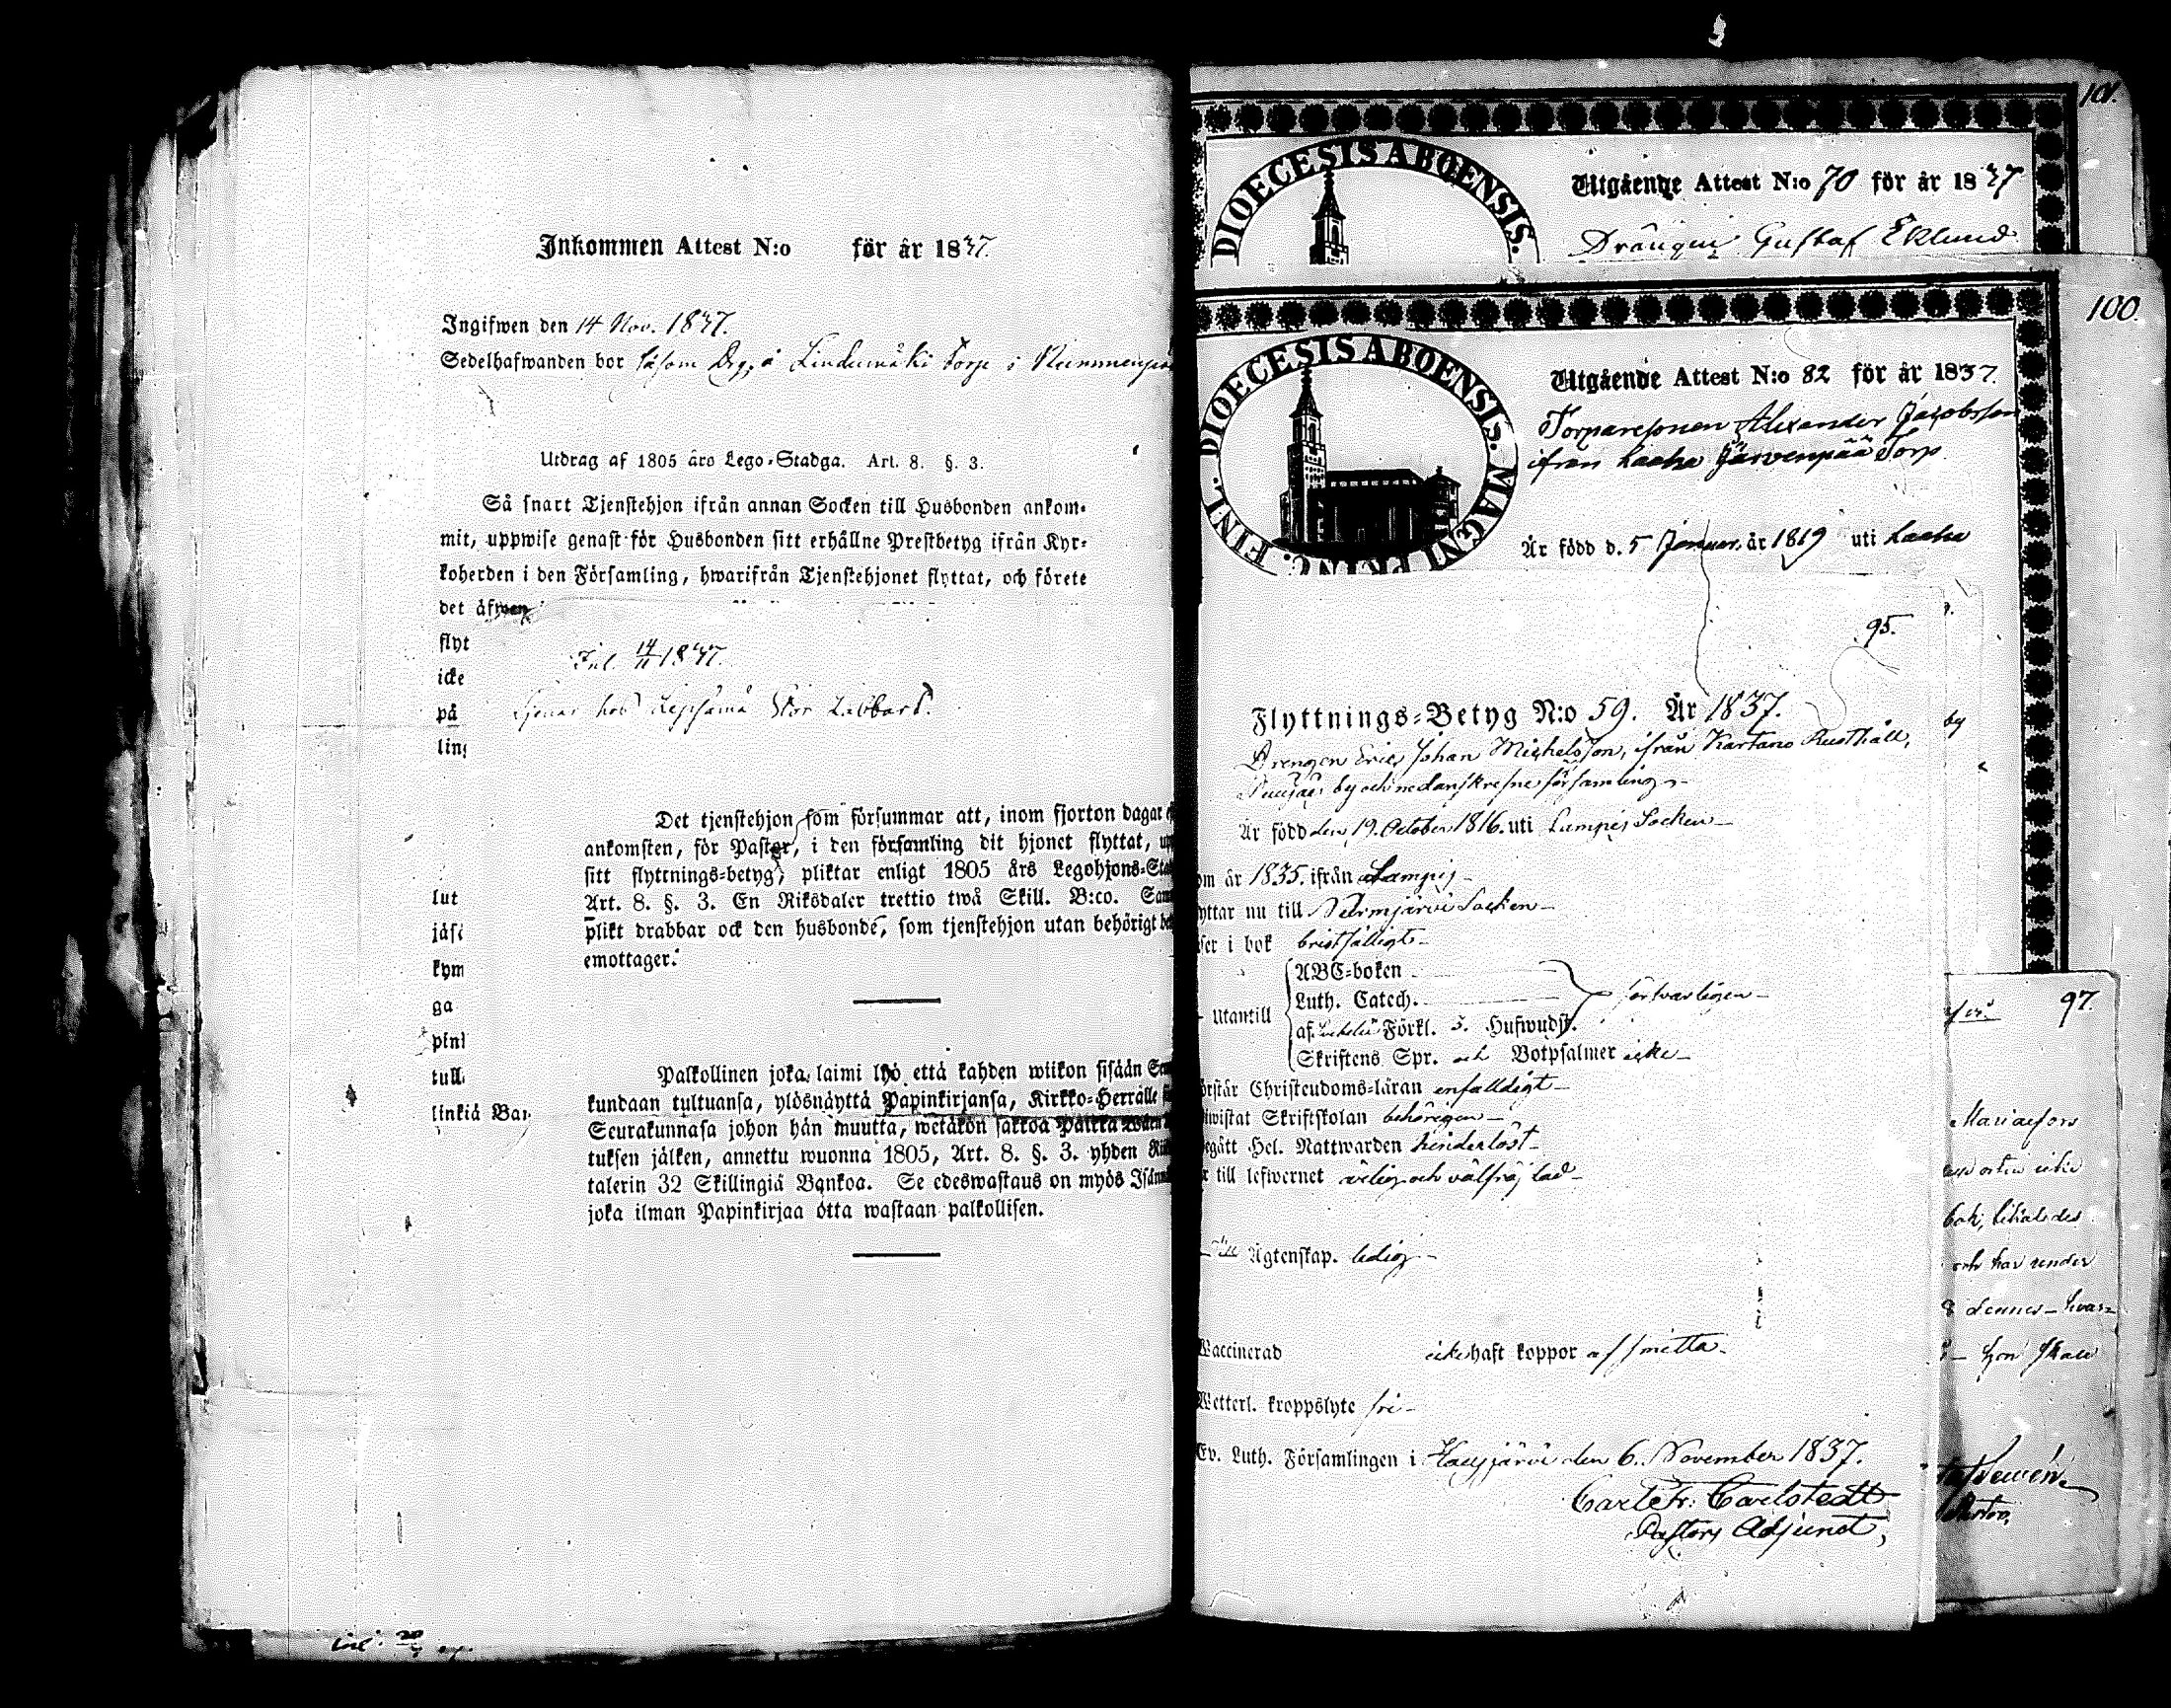 Inkommen Attest N:o för år 1837.
Ingifwen den 14 Nov. 1837.
Sedelhafwanden bor såsom Drg, å Lindumäki Torp i
Utdrag af 1805 års Lego-Stadga. Art. 8. §. 3.
Så snart Tjenstehjon ifrån annan Socken till Husbonden ankom-
mit, uppwise genast för Husbonden sitt erhållne Prestbetyg ifrån Kyr-
koherden i den Församling, hwarifrån Tjenstehjonet flyttat, och förete
det äfwen
flyt
icke
på
ling
Inl. 14/11 1837.
tjenar hos Lepsämä Stor Labbart.
Det tjenstehjon som försummar att, inom fjorton dagar
ankomsten, för Pastor, i den församling dit hjonet flyttat,
sitt flyttnings-betyg, pliktar enligt 1805 års Legohjons-
Art. 8. §. 3. En Riksdaler trettio twå Skill. B:co.
plikt drabbar ock den husbonde, som tjenstehjon utan behörigt
emottager.
lut
jäsi
kym
ga
pink
tull
linkiä Ban
Palkollinen joka laimi lyö että kahden wiikon sisään
kundaan tultuansa, ylösnäyttä Papinkirjansa, Kirkko-Herralle
Seurakunnasa johon hän muutta, wetäkön sakkoa
tuksen jälken, annettu wuonna 1805, Art. 8. §. 3. yhden
talerin 32 Skillingiä Bankoa. Se edeswastaus on myös
joka ilman Papinkirjaa otta wastaan palkollisen.
101.
DIOECESIS ABOENSIS.
Utgående Attest N:o 70 för år 1837
Drängen Gustaf Eklund
100.
FINL. DIOECESIS ABOENSIS. MAGNI PRINC.
Utgående Attest N:o 82 för år 1837.
Torparesonen Alexander Jacobsson
ifrån Laaha Järvenpää Torp
Är född d. 5 Januar. år 1819 uti Laaha
95.
Flyttnings-Betyg N:o 59. År 1837.
Drengen Eric Johan Michelsson, ifrån Kartano Rusthåll,
by och nedanskrefne församling
Är född den 19. October 1816. uti Lampis Socken
om år 1835. ifrån Lampis
yttar nu till Nurmjärvi Socken
ser i bok bristfälligt
Utantill
ABC-boken
Luth. Catech.
af Förkl. 5. Hufwudst.
försvarligen
Skriftens Spr. och Botpsalmer icke
örstår Christendoms-läran enfalldigt
iwistat Skriftskolan behörigen
egått Hel. Nattwarden hinderlöst
r till lefwernet ärlig och välfräjdad
till Ägtenskap. ledig
Waccinerad icke haft koppor af smitta
Wetterl. kroppslyte fri
Ev. Luth. Församlingen i Hausjärvi den 6. November 1837.
Carl Fr. Carlstedt
Pastors Adjunct,
by
97.
Mariæfors
och har under
hvar-
hon skall